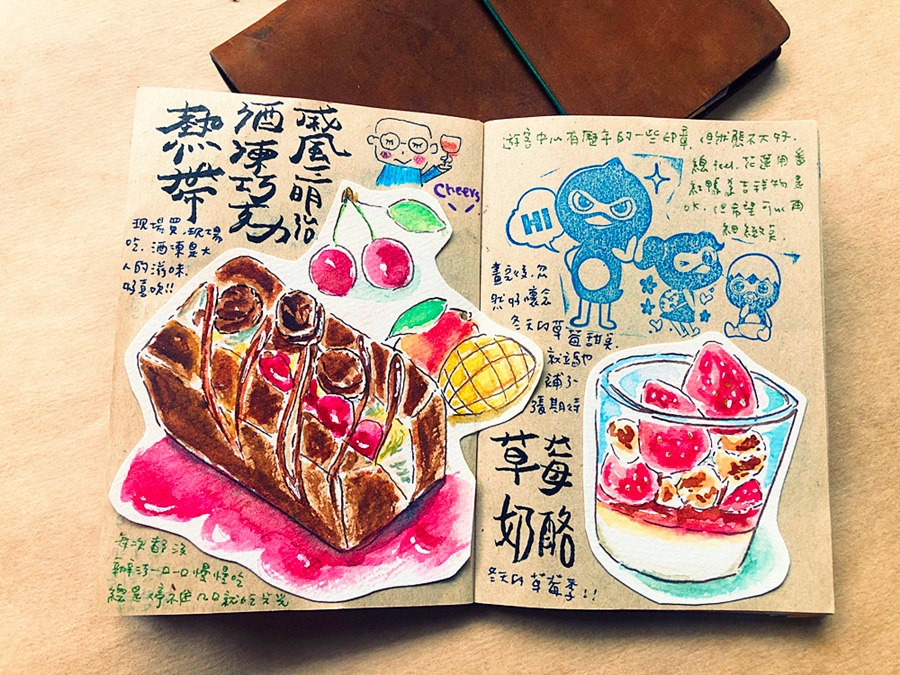 熱帶
酒凍巧克力
戚風三明治
Cheers
現場買，現場
吃，酒凍是大
人的滋味，
好喜吃!!
每次都該
一口一口慢慢吃
總是停不住几口就吃光光
遊客中心有歷年的一些印章，但狀態不太好，
花蓮用番
紅鴨當吉祥物是
OK，但希望可以再
細緻
HI
畫完後，忽
然好懷念
冬天的草莓甜點，
就
補了一
張期待
草莓
奶酪
冬天的草莓季!!